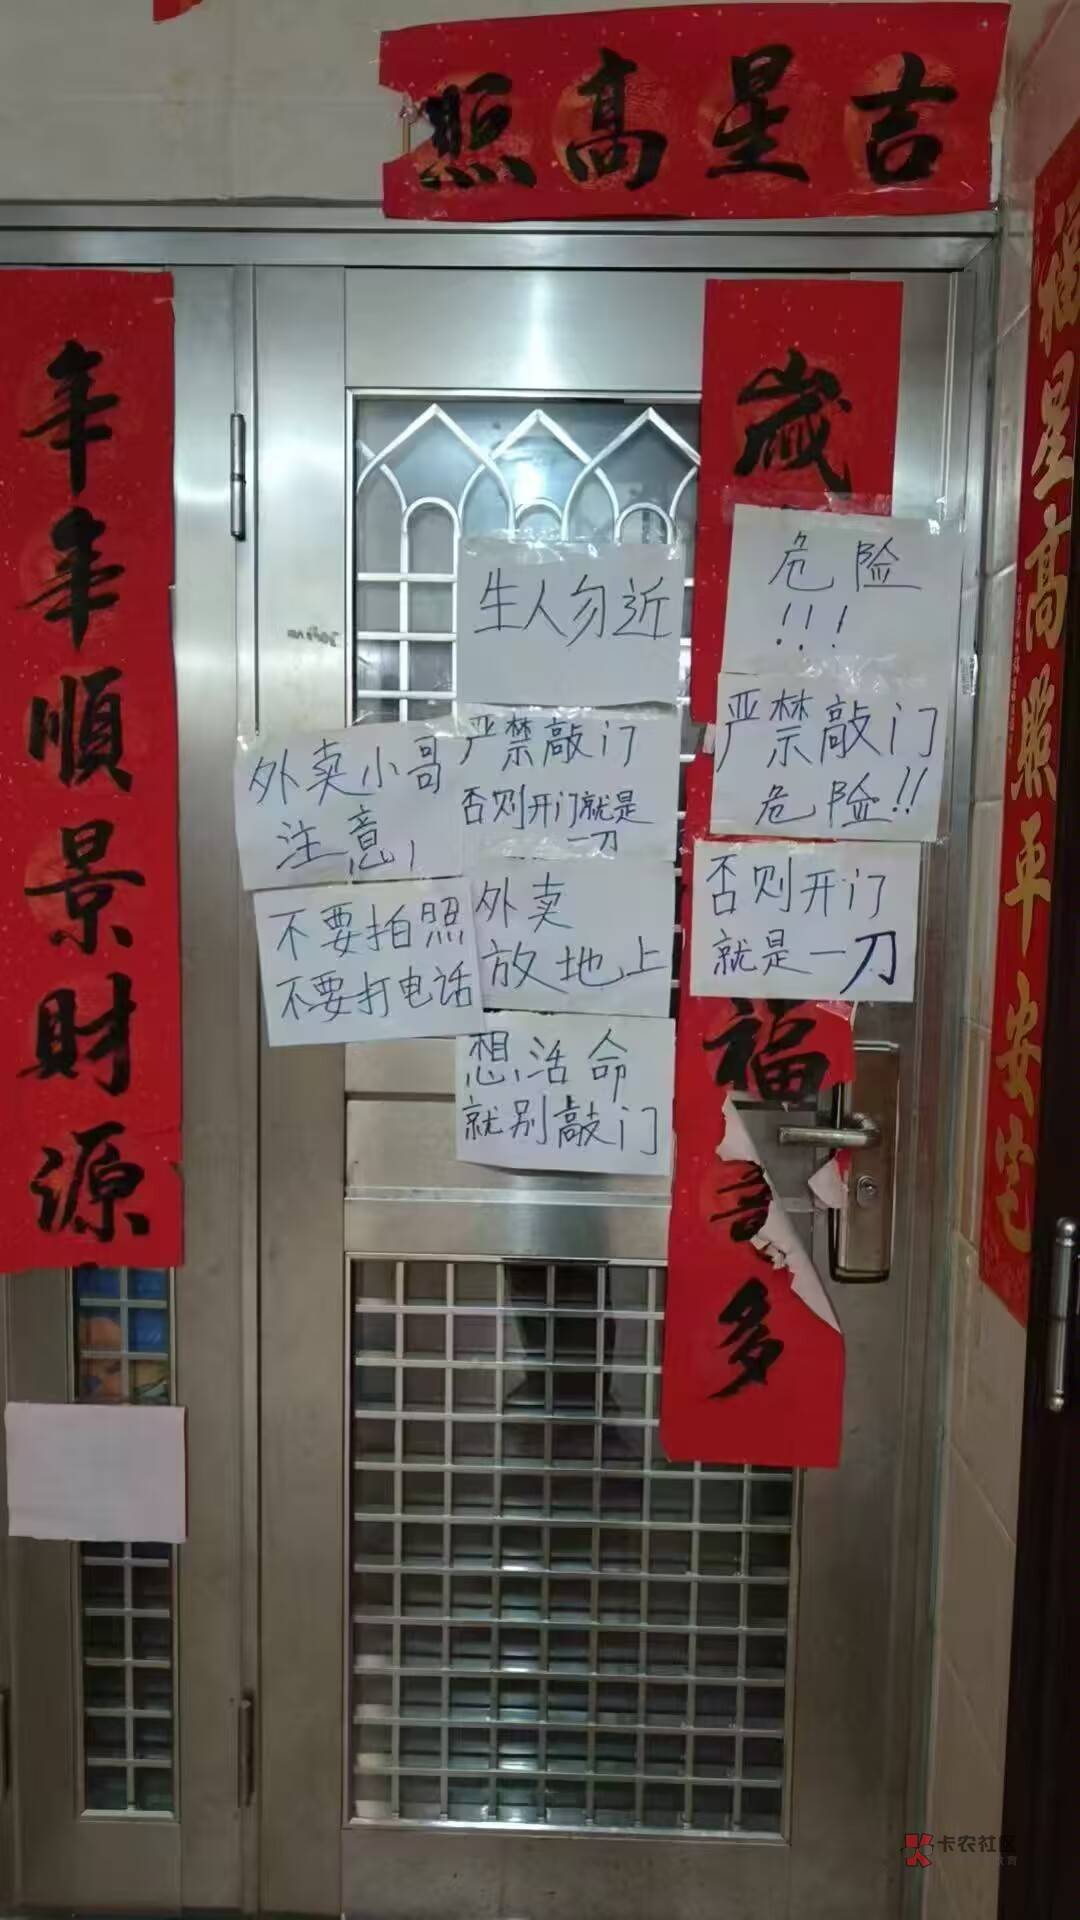 吉星高照
年年順景財源
歲
福
多
福星高照平安宅
生人勿近
危险
!!!
严禁敲门
危险!!
否则开门
就是一刀
外卖小哥
注意,
严禁敲门
否则开门就是
一刀
不要拍照
不要打电话
外卖
放地上
想活命
就别敲门
卡农社区